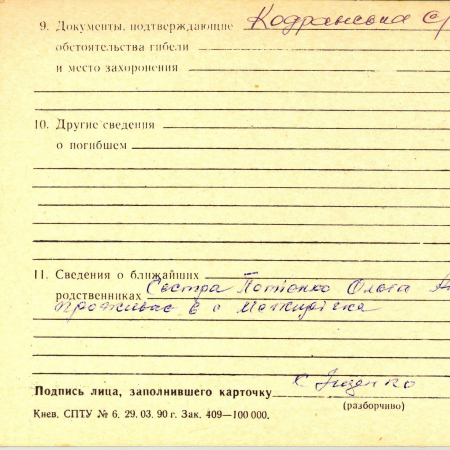 9. Документы, подтверждающие Кодранська
обстоятельства гибели
и место захоронения
10. Другие сведения
о погибшем
11. Сведения о ближайших
родственниках Сестра Ольга
проживає в с
Подпись лица, заполнившего карточку
(разборчиво)
Киев. СПТУ № 6. 29. 03. 90 г. Зак. 409—100 000.